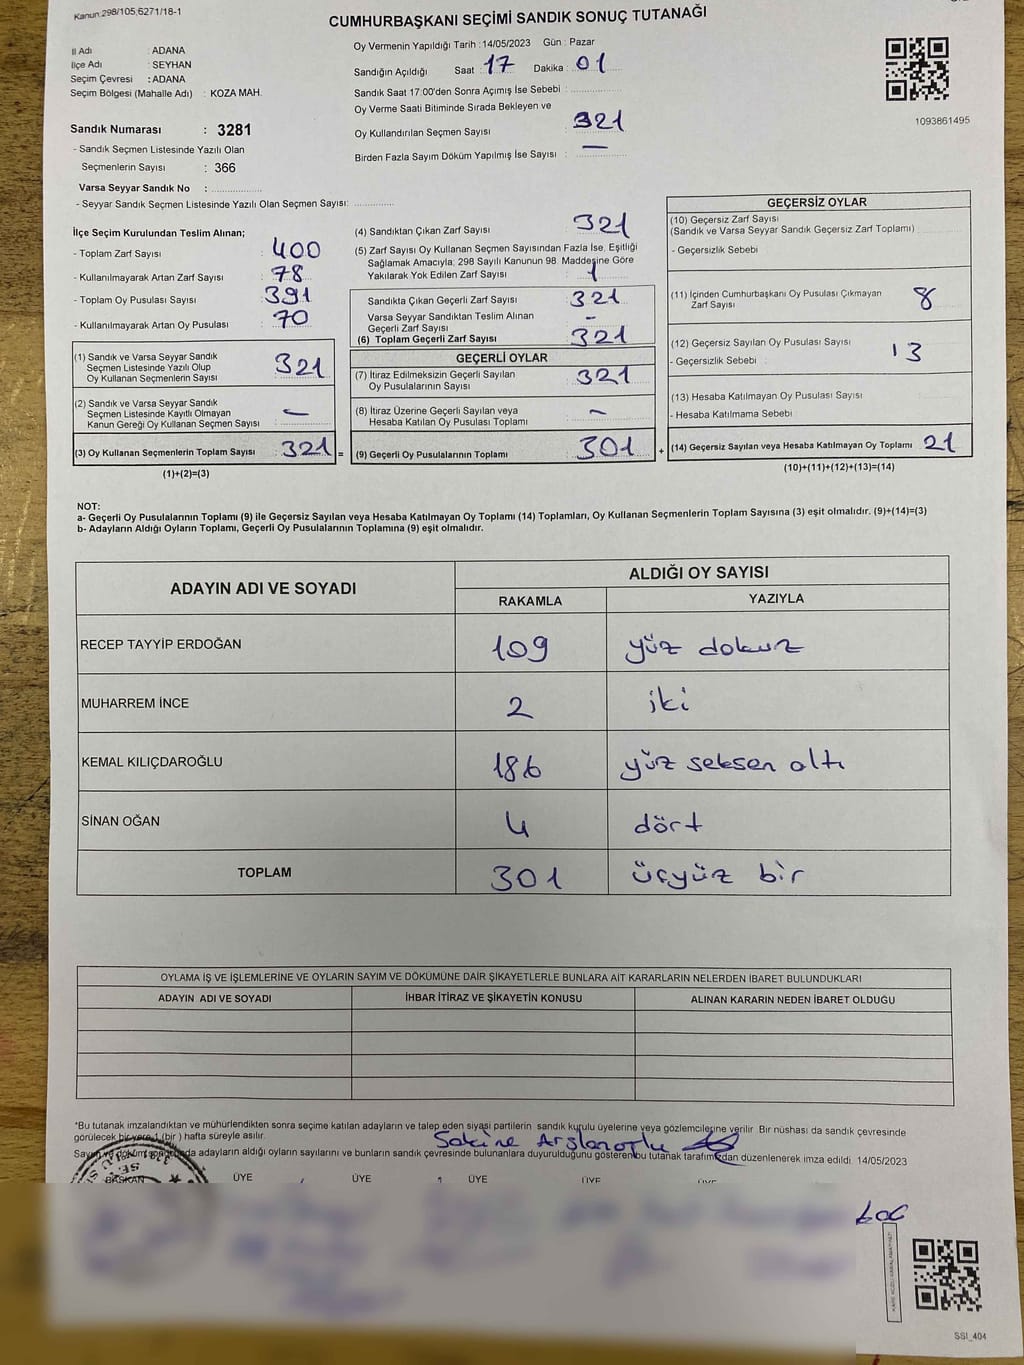 Kanun:298/105;6271/18-1
CUMHURBAŞKANI SEÇİMİ SANDIK SONUÇ TUTANAĞI
İl Adı : ADANA
İlçe Adı : SEYHAN
Seçim Çevresi : ADANA
Seçim Bölgesi (Mahalle Adı) : KOZA MAH.
Oy Vermenin Yapıldığı Tarih :14/05/2023 Gün : Pazar
Sandığın Açıldığı Saat 17 Dakika : 01
Sandık Saat 17:00'den Sonra Açımış İse Sebebi :
Oy Verme Saati Bitiminde Sırada Bekleyen ve
Oy Kullandırılan Seçmen Sayısı : 321
Birden Fazla Sayım Döküm Yapılmış İse Sayısı : —
1093861495
Sandık Numarası : 3281
- Sandık Seçmen Listesinde Yazılı Olan
Seçmenlerin Sayısı : 366
Varsa Seyyar Sandık No :
- Seyyar Sandık Seçmen Listesinde Yazılı Olan Seçmen Sayısı:
İlçe Seçim Kurulundan Teslim Alınan;
- Toplam Zarf Sayısı : 400
- Kullanılmayarak Artan Zarf Sayısı : 78
- Toplam Oy Pusulası Sayısı : 391
- Kullanılmayarak Artan Oy Pusulası : 70
(1) Sandık ve Varsa Seyyar Sandık
Seçmen Listesinde Yazılı Olup
Oy Kullanan Seçmenlerin Sayısı : 321
(2) Sandık ve Varsa Seyyar Sandık
Seçmen Listesinde Kayıtlı Olmayan
Kanun Gereği Oy Kullanan Seçmen Sayısı : —
(3) Oy Kullanan Seçmenlerin Toplam Sayısı : 321 =
(1)+(2)=(3)
(4) Sandıktan Çıkan Zarf Sayısı : 321
(5) Zarf Sayısı Oy Kullanan Seçmen Sayısından Fazla İse, Eşitliği
Sağlamak Amacıyla; 298 Sayılı Kanunun 98. Maddesine Göre
Yakılarak Yok Edilen Zarf Sayısı : 1
Sandıkta Çıkan Geçerli Zarf Sayısı : 321
Varsa Seyyar Sandıktan Teslim Alınan
Geçerli Zarf Sayısı : -
(6) Toplam Geçerli Zarf Sayısı : 321
GEÇERLİ OYLAR
(7) İtiraz Edilmeksizin Geçerli Sayılan
Oy Pusulalarının Sayısı : 321
(8) İtiraz Üzerine Geçerli Sayılan veya
Hesaba Katılan Oy Pusulası Toplamı : —
(9) Geçerli Oy Pusulalarının Toplamı : 301 +
GEÇERSİZ OYLAR
(10) Geçersiz Zarf Sayısı
(Sandık ve Varsa Seyyar Sandık Geçersiz Zarf Toplamı)
- Geçersizlik Sebebi
(11) İçinden Cumhurbaşkanı Oy Pusulası Çıkmayan
Zarf Sayısı : 8
(12) Geçersiz Sayılan Oy Pusulası Sayısı : 13
- Geçersizlik Sebebi :
(13) Hesaba Katılmayan Oy Pusulası Sayısı :
- Hesaba Katılmama Sebebi
(14) Geçersiz Sayılan veya Hesaba Katılmayan Oy Toplamı 21
(10)+(11)+(12)+(13)=(14)
NOT:
a- Geçerli Oy Pusulalarının Toplamı (9) ile Geçersiz Sayılan veya Hesaba Katılmayan Oy Toplamı (14) Toplamları, Oy Kullanan Seçmenlerin Toplam Sayısına (3) eşit olmalıdır. (9)+(14)=(3)
b- Adayların Aldığı Oyların Toplamı, Geçerli Oy Pusulalarının Toplamına (9) eşit olmalıdır.
ADAYIN ADI VE SOYADI ALDIĞI OY SAYISI
RAKAMLA YAZIYLA
RECEP TAYYİP ERDOĞAN 109 yüz dokuz
MUHARREM İNCE 2 iki
KEMAL KILIÇDAROĞLU 186 yüz seksen altı
SİNAN OĞAN 4 dört
TOPLAM 301 üçyüz bir
OYLAMA İŞ VE İŞLEMLERİNE VE OYLARIN SAYIM VE DÖKÜMÜNE DAİR ŞİKAYETLERLE BUNLARA AİT KARARLARIN NELERDEN İBARET BULUNDUKLARI
ADAYIN ADI VE SOYADI İHBAR İTİRAZ VE ŞİKAYETİN KONUSU ALINAN KARARIN NEDEN İBARET OLDUĞU
*Bu tutanak imzalandıktan ve mühürlendikten sonra seçime katılan adayların ve talep eden siyasi partilerin sandık kurulu üyelerine veya gözlemcilerine verilir. Bir nüshası da sandık çevresinde
görülecek bir yere 1 (bir ) hafta süreyle asılır.
Sakine Arslanoğlu
Sayım ve döküm sonucunda adayların aldığı oyların sayılarını ve bunların sandık çevresinde bulunanlara duyurulduğunu gösteren bu tutanak tarafımızdan düzenlenerek imza edildi. 14/05/2023
BAŞKAN ÜYE ÜYE ÜYE ÜYE ÜYE
SSI_404